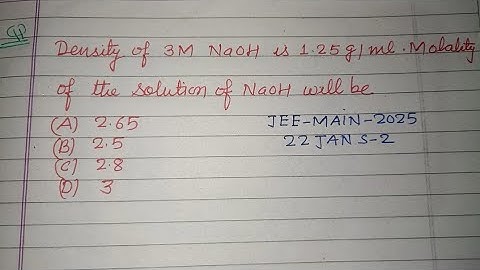 Q
Density of 3M NaOH is 1.25g/ml. Molality
of the solution of NaOH will be
(A) 2.65
(B) 2.5
(C) 2.8
(D) 3
JEE-MAIN-2025
22 JAN S-2